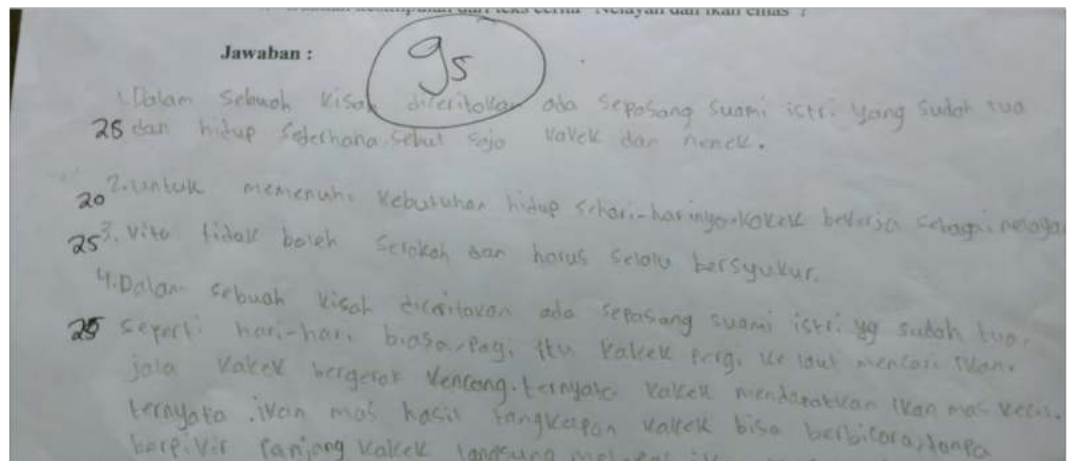 kesimpulan dari teks cerita "Nelayan dan ikan emas"?
Jawaban :
95
1. Dalam sebuah kisah diceritakan ada sepasang suami istri yang sudah tua
25 dan hidup sederhana, sebut saja kakek dan nenek.
20 2. untuk memenuhi kebutuhan hidup sehari-harinya kakek bekerja sebagai nelayan
25 3. kita tidak boleh serakah dan harus selalu bersyukur.
4. Dalam sebuah kisah diceritakan ada sepasang suami istri yg sudah tua.
25 seperti hari-hari biasa, pagi itu kakek pergi ke laut mencari ikan.
jala kakek bergerak kencang. ternyata kakek mendapatkan ikan mas kecil.
ternyata .ikan mas hasil tangkapan kakek bisa berbicara, tanpa
berpikir panjang kakek langsung